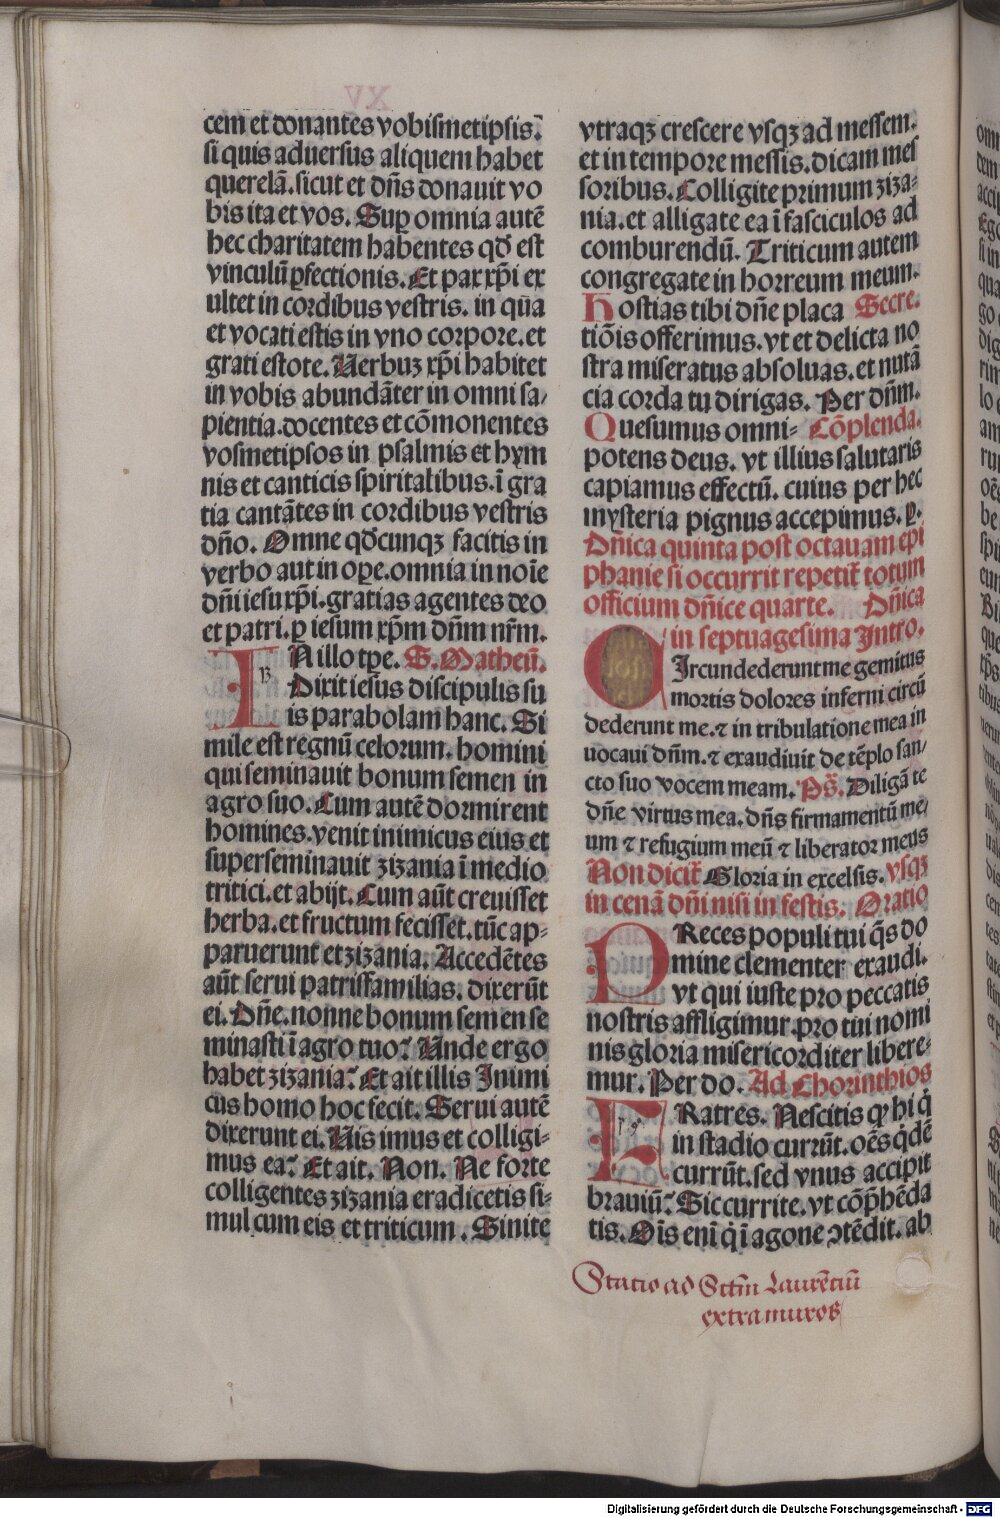 cem et donantes vobismetipsis.
si quis aduersus aliquem habet
querelā. sicut et dn̄s donauit vo
bis ita et vos. Sup̱ omnia autē
hec charitatem habentes qd̄ est
vinculū p̱fectionis. Et pax xp̄i ex
ultet in cordibus vestris. in qūa
et vocati estis in vno corpore. et
grati estote. Verbuʒ xp̄i habitet
in vobis abundāter in omni sa/
pientia. docentes et cōmonentes
vosmetipsos in psalmis et hym
nis et canticis spiritalibus. ī gra
tia cantātes in cordibus vestris
dn̄o. Omne qd̄cunqʒ facitis in
verbo aut in op̱e. omnia in noīe
dn̄i iesu xp̄i. gratias agentes deo
et patri. p̱ iesum xp̄m dn̄m nr̄m.
IN illo tp̄e. S. Matheū.
Dixit iesus discipulis su
is parabolam hanc. Si
mile est regnū celorum. homini
qui seminauit bonum semen in
agro suo. Cum autē dormirent
homines. venit inimicus eius et
superseminauit zizania ī medio
tritici. et abijt. Cum aūt creuisset
herba. et fructum fecisset. tūc ap-
paruerunt et zizania. Accedētes
aūt serui patrisfamilias. dixerūt
ei. Dn̄e. nonne bonum semen se
minasti ī agro tuo? Unde ergo
habet zizania? Et ait illis Inimi
cus homo hoc fecit. Serui autē
dixerunt ei. Vis imus et colligi-
mus ea? Et ait. Non. Ne forte
colligentes zizania eradicetis si-
mul cum eis et triticum. Sinite
vtraqʒ crescere vsqʒ ad messem.
et in tempore messis. dicam mes
soribus. Colligite primum ziza-
nia. et alligate ea ī fasciculos ad
comburendū. Triticum autem
congregate in horreum meum.
Hostias tibi dn̄e placa Secre.
tiōis offerimus. vt et delicta no
stra miseratus absoluas. et nutā
cia corda tu dirigas. Per dn̄m.
Quesumus omni- Cōplenda.
potens deus. vt illius salutaris
capiamus effectū. cuius per hec
mysteria pignus accepimus. p̱.
Dn̄ica quinta post octauam epi
phanie si occurrit repetit̄ totum
officium dn̄ice quarte. Dn̄ica
in septuagesima Intro.
CIrcundederunt me gemitus
mortis dolores inferni circū
dederunt me. ⁊ in tribulatione mea in
uocaui dn̄m. ⁊ exaudiuit de tēplo san/
cto suo vocem meam. Ps̄. Diligā te
dn̄e virtus mea. dn̄s firmamentū me/
um ⁊ refugium meū ⁊ liberator meus
Non dicit̄ Gloria in excelsis. vsqʒ
in cenā dn̄i nisi in festis. Oratio
PReces populi tui q̄s do
mine clementer exaudi.
vt qui iuste pro peccatis
nostris affligimur. pro tui nomi
nis gloria misericorditer libere-
mur. Per do. Ad Chorinthios
FRatres. Nescitis qꝫ hi q̄
in stadio currūt. oēs qdē
currūt. sed vnus accipit
brauiū? Sic currite. vt cōp̄hēda
tis. Oīs enī q̇ ī agone ↄtēdit. ab
Statio ad Sctm̄ Laurētiū
extra muros
Digitalisierung gefördert durch die Deutsche Forschungsgemeinschaft - DFG